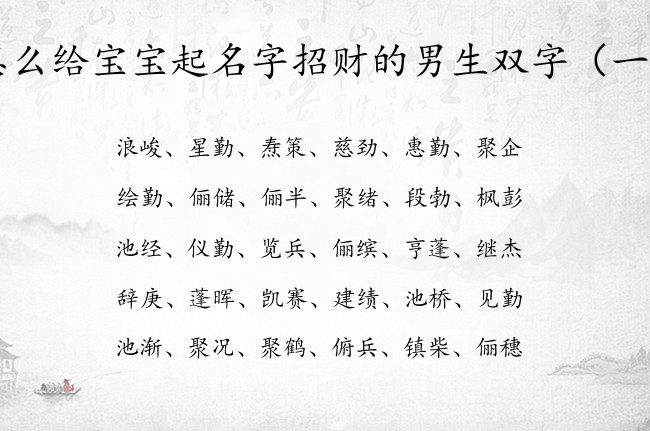 么给宝宝起名字招财的男生双字（一
浪峻、星勤、焘策、慈劲、惠勤、聚企
绘勤、俪储、俪半、聚绪、段勃、枫彭
池经、仪勤、览兵、俪缤、亨蓬、继杰
辞庚、蓬晖、凯赛、建绩、池桥、见勤
池渐、聚况、聚鹤、俯兵、镇柴、俪穗